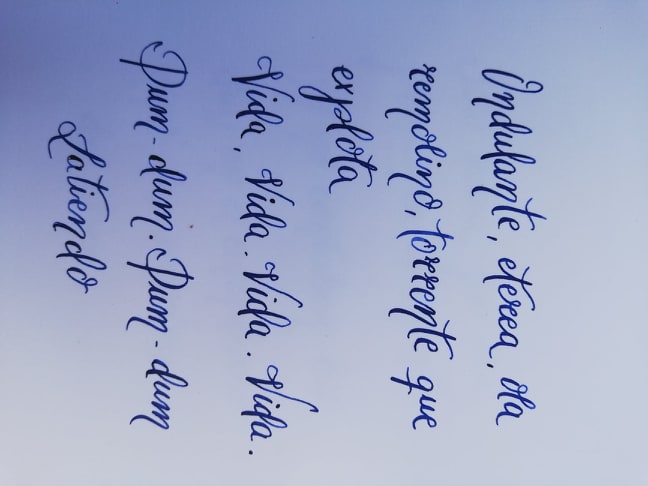 Ondulante, eterea, ola
remolino, torrente que
explota
Vida, Vida. Vida. Vida.
Pum-dum. Pum-dum
Latiendo